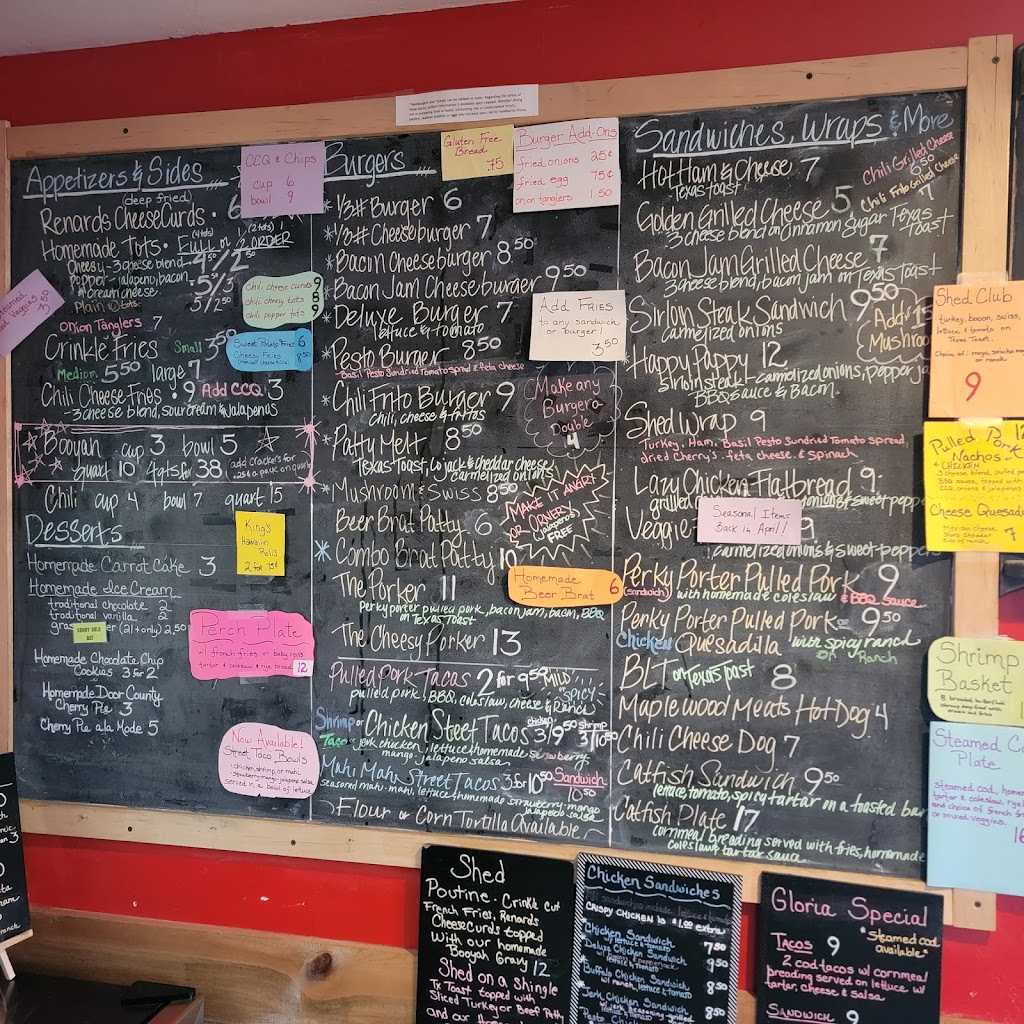 Appetizers & Sides
(deep fried)
Renards Cheese Curds · 6
Homemade Tots · Full or 1/2 ORDER
Cheesy - 3 cheese blend 4.50/2.50
popper - jalapeno, bacon,
& cream cheese
Plain Tots
Onion Tanglers 7
Crinkle Fries Small 3.50
Medium 5.50 large 7
Chili Cheese Fries · 9 Add CCQ 3
- 3 cheese blend, sour cream & Jalapenos
Booyah cup 3 bowl 5
quart 10 4 qts for 38
add crackers for
Chili cup 4 bowl 7 quart 15
CCQ & Chips
cup 6
bowl 9
Steamed
Veggies
3.50
Chili cheese curds 9
Chili cheesy tots 8
chili popper tots 9
Sweet Potato Fries 6
Cheesy Fries
8.50
King's
Hawaiian
Rolls
2 for 75¢
Desserts
Homemade Carrot Cake 3
Homemade Ice Cream
traditional chocolate 2
traditional vanilla 2
(21+ only) 2.50
SORRY SOLD
OUT
Homemade Chocolate Chip
Cookies 3 for 2
Homemade Door County
Cherry Pie 3
Cherry Pie a la Mode 5
Perch Plate
w/ french fries or baby reds
tartar & coleslaw & rye bread 12
Now Available!
Street Taco Bowls
- chicken, shrimp, or mahi
strawberry mango jalapeno salsa
served in a bowl of lettuce
Burgers
Gluten Free
Bread
.75
Burger Add-Ons
fried onions 25¢
fried egg 75¢
onion tanglers 1.50
* 1/3# Burger 6
* 1/3# Cheeseburger 7
* Bacon Cheeseburger 8.50
* Bacon Jam Cheeseburger 9.50
* Deluxe Burger 7
lettuce & tomato
* Pesto Burger 8.50
Basil Pesto Sundried Tomato spread & feta cheese
* Chili Frito Burger 9
Chili, cheese & fritos
* Patty Melt 8.50
Texas Toast, co jack & cheddar cheese
carmelized onions
* Mushroom & Swiss 8.50
Beer Brat Patty 6
* Combo Brat Patty 10
The Porker 11
perky porter pulled pork, bacon jam, bacon, BBQ
on Texas toast
The Cheesy Porker 13
Add Fries
to any sandwich
or burger!
3.50
Make any
Burger a
Double
4
MAKE IT ANGRY
OR ORNERY
jalapenos
FREE
Homemade
Beer Brat 6
Pulled Pork Tacos 2 for 9.50 MILD or SPICY
pulled pork, BBQ, coleslaw, cheese & ranch
Shrimp or Chicken Street Tacos chicken 3/9.50 shrimp 3/10.50
Tacos - jerk chicken, lettuce, homemade strawberry-
mango jalapeno salsa
Mahi Mahi Street Tacos 3 for 10.50 Sandwich 10.50
seasoned mahi-mahi, lettuce, homemade strawberry-mango
jalapeno salsa
~ Flour or Corn Tortilla Available ~
Sandwiches, Wraps & More
Hot Ham & Cheese 7
Texas toast
Chili Grilled Cheese
6.50
Chili Frito Grilled Cheese
7
Golden Grilled Cheese 5
3 cheese blend on Cinnamon Sugar Texas
Toast
Bacon Jam Grilled Cheese 7
3 cheese blend, bacon jam on Texas Toast
Sirloin Steak Sandwich 9.50
carmelized onions
Mushroom
Happy Puppy 12
sirloin steak - carmelized onions, Pepper ja
BBQ sauce & Bacon
Shed Wrap 9
Turkey, Ham, Basil Pesto Sundried Tomato spread,
dried cherry's, feta cheese, & spinach
Lazy Chicken Flatbread 9
grilled onions & sweet peppe
Veggie 9
carmelized onions & sweet pepper
Seasonal Items
Back in April!
Perky Porter Pulled Pork 9
(sandwich) with homemade coleslaw & BBQ Sauce
Perky Porter Pulled Pork or 9.50
Chicken Quesadilla with spicy ranch
or Ranch
BLT on Texas toast 8
Maplewood Meats Hot Dog 4
Chili Cheese Dog 7
Catfish Sandwich 9.50
lettuce, tomato, spicy tartar on a toasted bar
Catfish Plate 17
cornmeal breading served with fries, homemade
coleslaw, tartar sauce
Shed Club
turkey, bacon, swiss,
lettuce & tomato on
Texas Toast.
Choice of: mayo, sriracha mayo
or ranch
9
Pulled Pork 12
Nachos
& CHICKEN
3 cheese blend, pulled po
BBQ sauce, topped with
Cheese Quesadi
Mexican cheese
Sharp Cheddar
Side of ranch 7
Shrimp
Basket
Steamed Co
Plate
steamed cod, home
tartar & coleslaw, rye
and choice of french fri
or mixed veggies.
16
Shed
Poutine - Crinkle Cut
French Fries, Renards
Cheese Curds topped
With our homemade
Booyah Gravy 12
Shed on a Shingle
Tx Toast topped with
Sliced Turkey or Beef Patty
and our
Chicken Sandwiches
sandwiches include lettuce & tomato
CRISPY CHICKEN IS $1.00 extra
Chicken Sandwich 7.50
w/ lettuce & tomato
Deluxe Chicken Sandwich 9.50
lettuce & tomato
Buffalo Chicken Sandwich 8.50
w/ ranch, lettuce & tomato
Jerk Chicken Sandwich 8.50
w/ jerk seasoning - grilled
Pesto Chicken
Gloria Special
*steamed cod
available*
Tacos 9
2 cod tacos w/ cornmeal
breading served on lettuce w/
tartar, cheese & salsa
Sandwich 9